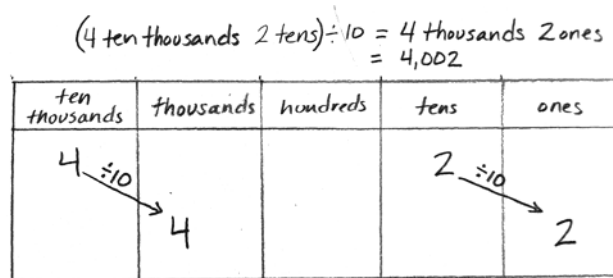 (4 ten thousands 2 tens) ÷ 10 = 4 thousands 2 ones
= 4,002
ten thousands
thousands
hundreds
tens
ones
4 ÷10
2 ÷10
4
2